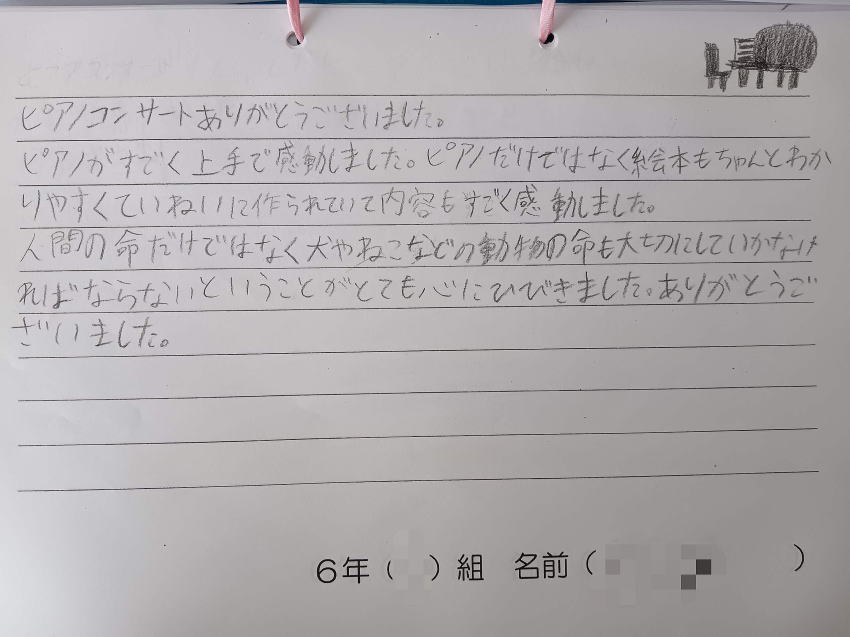 ピアノコンサートありがとうございました。
ピアノがすごく上手で感動しました。ピアノだけではなく絵本もちゃんとわか
りやすくていねいに作られていて内容もすごく感動しました。
人間の命だけではなく犬やねこなどの動物の命も大切にしていかなけ
ればならないということがとても心にひびきました。ありがとうご
ざいました。
6年( )組 名前( )